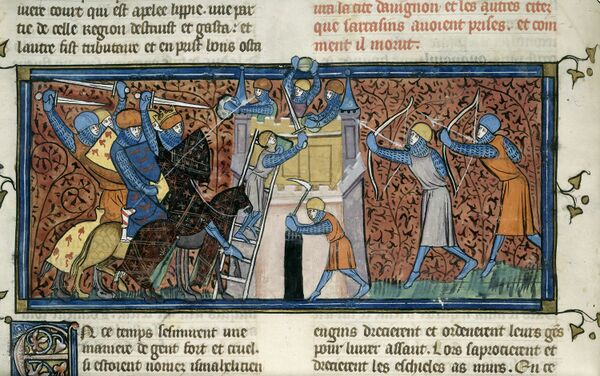 uiere court qui est apelee lippie. une par
tie de celle Region destruist et gasta: et
lautre fist tributaire et en prist bons osta
ura la cite dauignon et les autres citez
que sarrasins auoient prises. et com
ment il morut.
En ce temps sesmurent une
maniere de gent fort et cruel.
si estoient nomez ismalxlitien
engins drecierent et ordenerent leurs gens
pour liurer assaut. Lors saprocierent et
drecierent les eschieles as murs. En ce